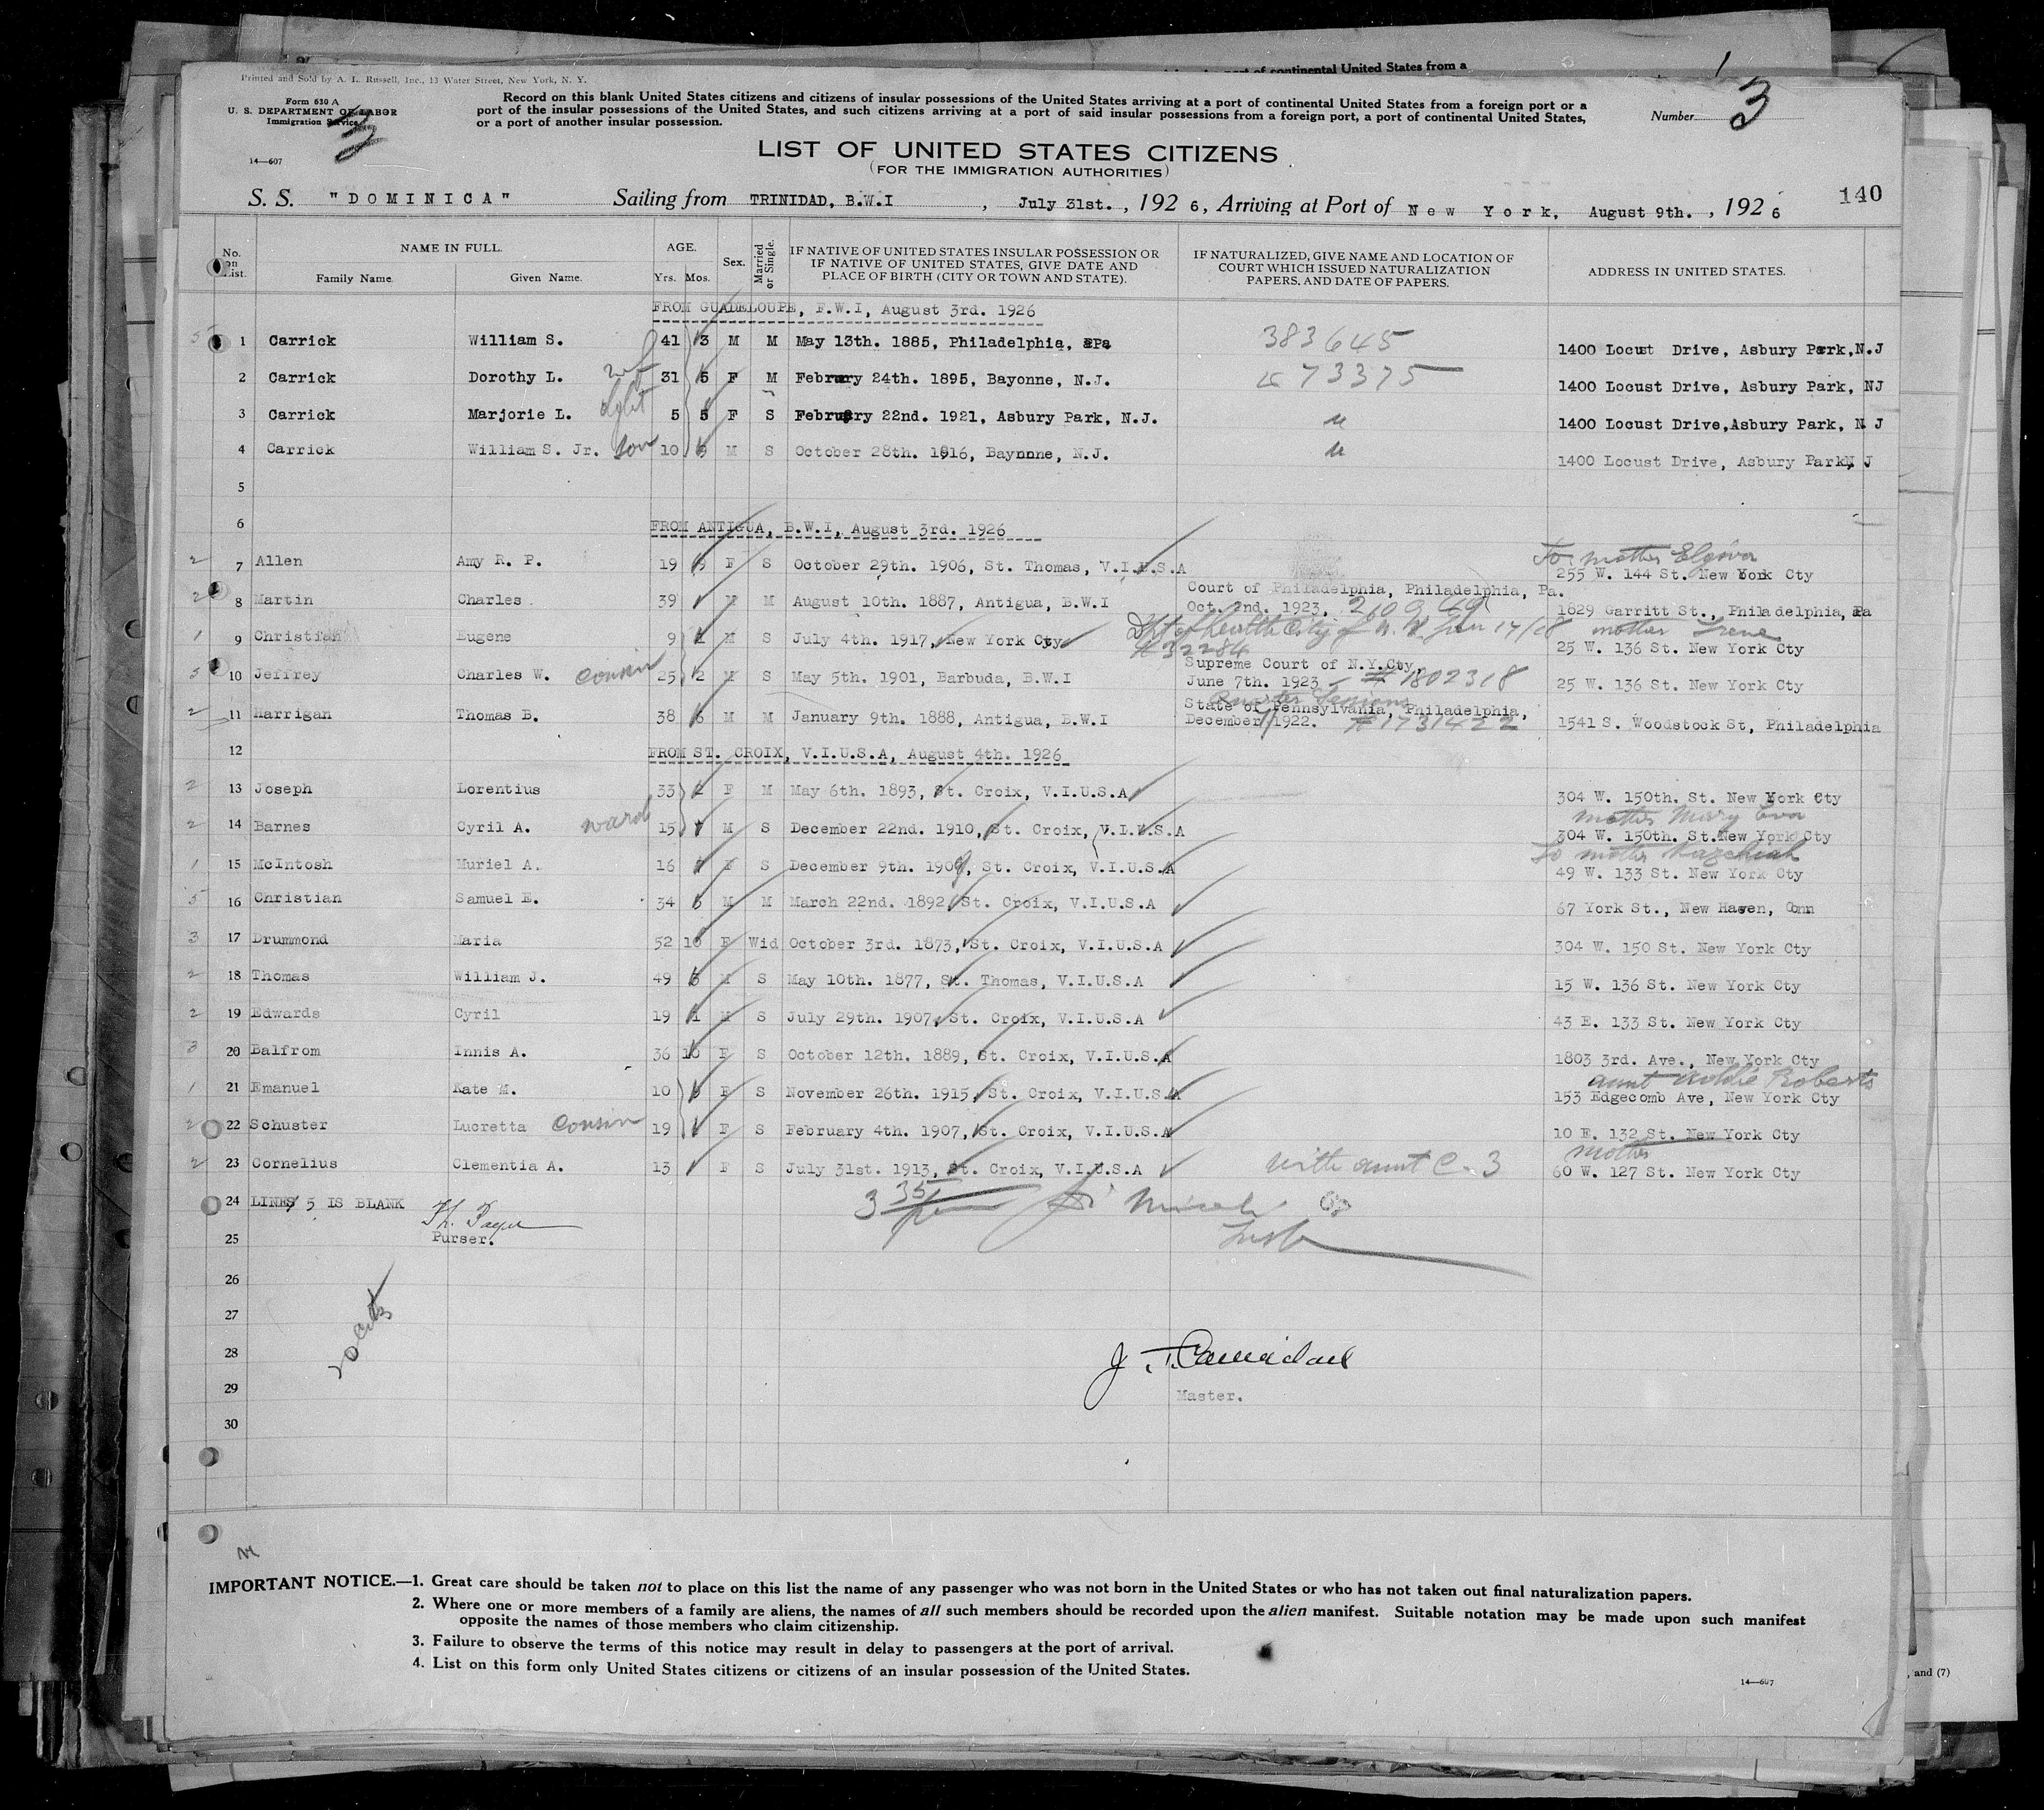 port of continental United States from a
Printed and Sold by A. L. Russell, Inc., 13 Water Street, New York, N. Y.
Form 630 A
U. S. DEPARTMENT OF LABOR
Immigration Service
3
14—607
Record on this blank United States citizens and citizens of insular possessions of the United States arriving at a port of continental United States from a foreign port or a
port of the insular possessions of the United States, and such citizens arriving at a port of said insular possessions from a foreign port, a port of continental United States,
or a port of another insular possession.
Number 3
LIST OF UNITED STATES CITIZENS
(FOR THE IMMIGRATION AUTHORITIES)
S. S. "DOMINICA" Sailing from TRINIDAD, B.W.I , July 31st. , 192 6, Arriving at Port of New York, August 9th. , 192 6 140
No. on List. NAME IN FULL. AGE. Sex. Married or Single. IF NATIVE OF UNITED STATES INSULAR POSSESSION OR IF NATIVE OF UNITED STATES, GIVE DATE AND PLACE OF BIRTH (CITY OR TOWN AND STATE). IF NATURALIZED, GIVE NAME AND LOCATION OF COURT WHICH ISSUED NATURALIZATION PAPERS, AND DATE OF PAPERS. ADDRESS IN UNITED STATES.
Family Name. Given Name. Yrs. Mos.
FROM GUADELOUPE, F.W.I, August 3rd. 1926
5 1 Carrick William S. 41 3 M M May 13th. 1885, Philadelphia, Pa 383645 1400 Locust Drive, Asbury Park, N.J
2 Carrick Dorothy L. wf 31 5 F M February 24th. 1895, Bayonne, N.J. 73375 1400 Locust Drive, Asbury Park, NJ
3 Carrick Marjorie L. dght 5 5 F S February 22nd. 1921, Asbury Park, N.J. " 1400 Locust Drive,Asbury Park, N J
4 Carrick William S. Jr. son 10 9 M S October 28th. 1916, Baynnne, N.J. " 1400 Locust Drive, Asbury Park, N J
5
6 FROM ANTIGUA, B.W.I, August 3rd. 1926
To mother
2 7 Allen Amy R. P. 19 9 F S October 29th. 1906, St. Thomas, V.I.U.S.A 255 W. 144 St. New York Cty
Court of Philadelphia, Philadelphia, Pa.
2 8 Martin Charles 39 M M August 10th. 1887, Antigua, B.W.I Oct. 2nd. 1923, 1829 Garritt St., Philadelphia, Pa
Dpt of Health City of N.Y. Jan 17/18 mother Irene
1 9 Christian Eugene 9 1 M S July 4th. 1917, New York Cty #32284 25 W. 136 St. New York Cty
Supreme Court of N.Y.Cty,
5 10 Jeffrey Charles W. cousin 25 2 M S May 5th. 1901, Barbuda, B.W.I June 7th. 1923 - #1802318 25 W. 136 St. New York Cty
Quarter Sessions
State of Pennsylvania, Philadelphia,
2 11 Harrigan Thomas B. 38 6 M M January 9th. 1888, Antigua, B.W.I December 1922. #1731422 1541 S. Woodstock St, Philadelphia
12 FROM ST. CROIX, V.I.U.S.A, August 4th. 1926
2 13 Joseph Lorentius 33 2 F M May 6th. 1893, St. Croix, V.I.U.S.A 304 W. 150th. St. New York Cty
mother Mary
2 14 Barnes Cyril A. ward 15 7 M S December 22nd. 1910, St. Croix, V.I.U.S.A 304 W. 150th. St.New York Cty
To mother
1 15 McIntosh Muriel A. 16 F S December 9th. 1909, St. Croix, V.I.U.S.A 49 W. 133 St. New York Cty
5 16 Christian Samuel E. 34 5 M M March 22nd. 1892, St. Croix, V.I.U.S.A 67 York St., New Haven, Conn
3 17 Drummond Maria 52 10 F Wid October 3rd. 1873, St. Croix, V.I.U.S.A 304 W. 150 St. New York Cty
2 18 Thomas William J. 49 3 M S May 10th. 1877, St. Thomas, V.I.U.S.A 15 W. 136 St. New York Cty
2 19 Edwards Cyril 19 1 M S July 29th. 1907, St. Croix, V.I.U.S.A 43 E. 133 St. New York Cty
3 20 Balfrom Innis A. 36 10 F S October 12th. 1889, St. Croix, V.I.U.S.A 1803 3rd. Ave., New York Cty
aunt Addie Roberts
1 21 Emanuel Kate M. 10 9 F S November 26th. 1915, St. Croix, V.I.U.S.A 153 Edgecomb Ave, New York Cty
2 22 Schuster Lucretta cousin 19 F S February 4th. 1907, St. Croix, V.I.U.S.A 10 E. 132 St. New York Cty
mother
2 23 Cornelius Clementia A. 13 F S July 31st. 1913, St. Croix, V.I.U.S.A with aunt C. 3 60 W. 127 St. New York Cty
24 LINES 5 IS BLANK 3 35
25 Purser.
26
27
20 cits
28
29 Master.
30
IMPORTANT NOTICE.—1. Great care should be taken not to place on this list the name of any passenger who was not born in the United States or who has not taken out final naturalization papers.
2. Where one or more members of a family are aliens, the names of all such members should be recorded upon the alien manifest. Suitable notation may be made upon such manifest
opposite the names of those members who claim citizenship.
3. Failure to observe the terms of this notice may result in delay to passengers at the port of arrival.
4. List on this form only United States citizens or citizens of an insular possession of the United States.
14—607
, and (7)